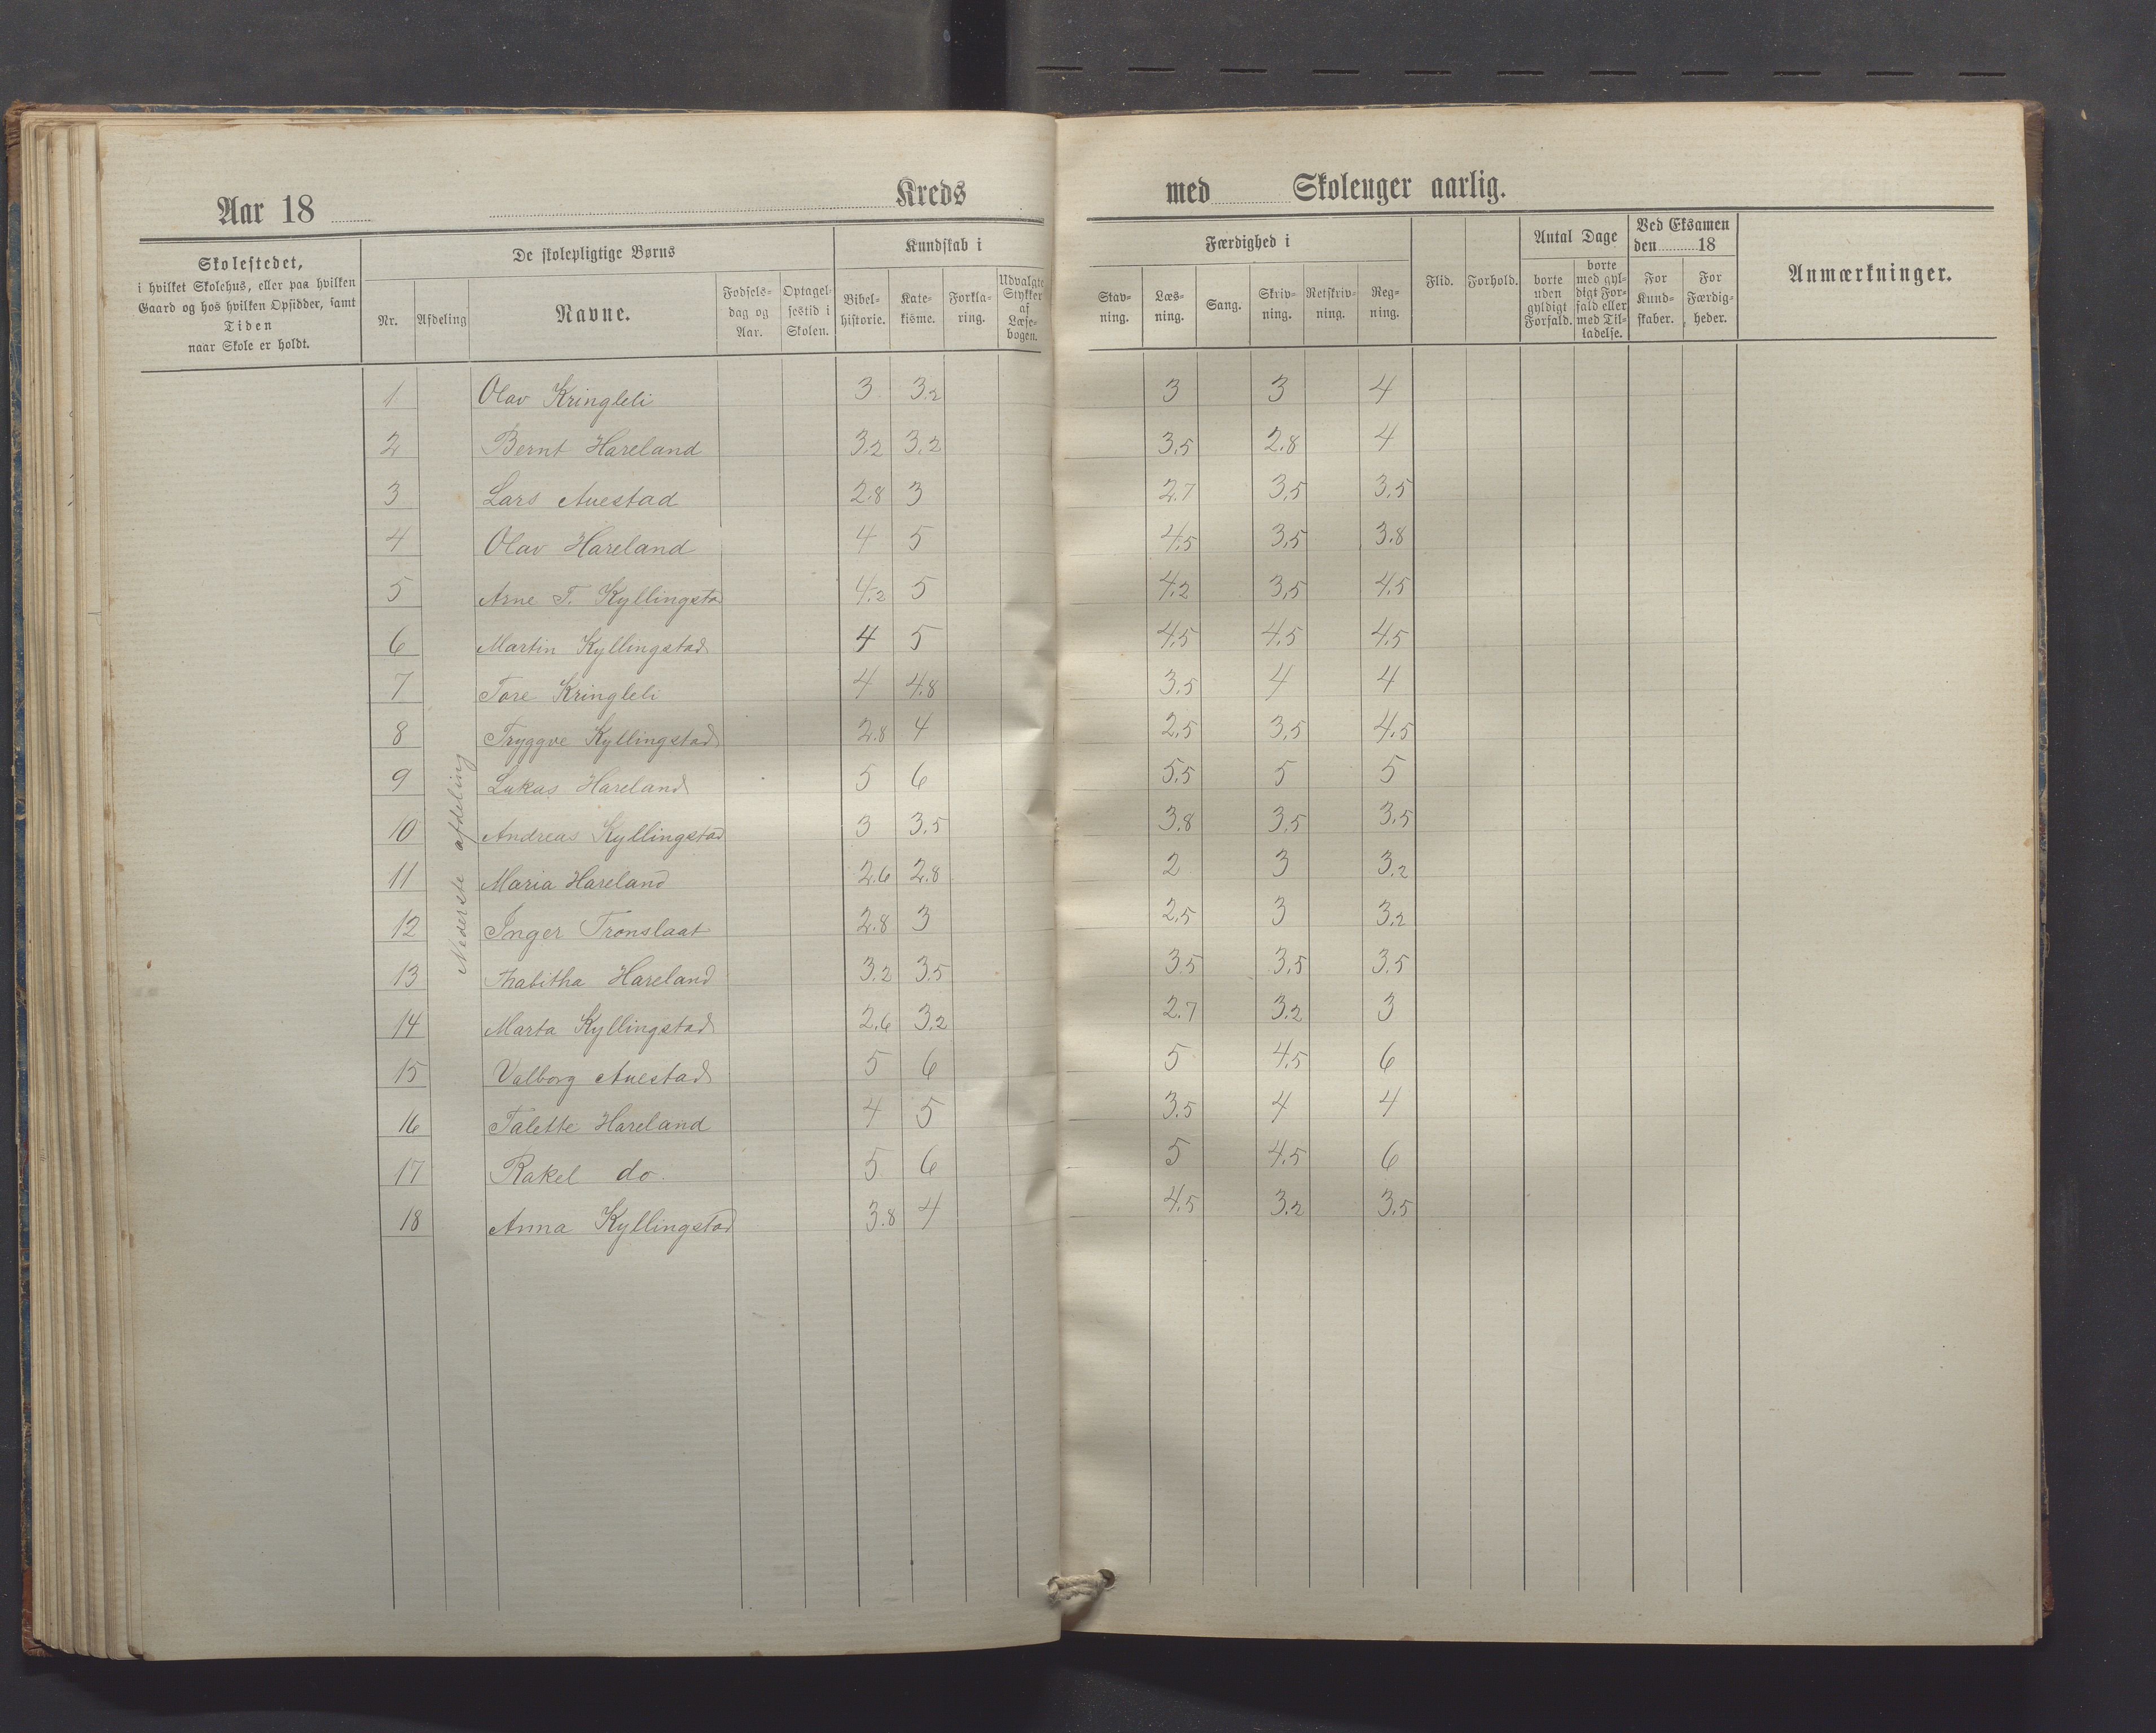 Aar 18 Kreds med Skoleuger aarlig.
Skolestedet,
i hvilket Skolehus, eller paa hvilken
Gaard og hos hvilken Opsidder, samt
Tiden
naar Skole er holdt.
De skolepligtige Børns
Nr. Afdeling Navne. Fødsels-dag og Aar. Optagel-sestid i Skolen.
Kundskab i
Bibel-historie. Kate-kisme. Forkla-ring. Udvalgte Stykker af Læse-bogen.
Færdighed i
Stav-ning. Læs-ning. Sang. Skriv-ning. Retskriv-ning. Reg-ning.
Flid. Forhold.
Antal Dage
borte uden gyldigt Forfald. borte med gyl-digt For-fald eller med Til-ladelse.
Ved Eksamen
den 18
For Kund-skaber. For Færdig-heder.
Anmærkninger.
Nederste afdeling
1 Olav Kringleli 3 3.2 3 3 4
2 Bernt Hareland 3.2 3.2 3,5 2.8 4
3 Lars Auestad 2.8 3 2.7 3,5 3,5
4 Olav Hareland 4 5 4,5 3,5 3.8
5 Arne T. Kyllingstad 4.2 5 4.2 3,5 4,5
6 Martin Kyllingstad 4 5 4,5 4,5 4,5
7 Tore Kringleli 4 4.8 3,5 4 4
8 Tryggve Kyllingstad 2.8 4 2,5 3,5 4,5
9 Lukas Hareland 5 6 5,5 5 5
10 Andreas Kyllingstad 3 3,5 3.8 3,5 3,5
11 Maria Hareland 2.6 2.8 2 3 3.2
12 Inger Tronslaat 2.8 3 2,5 3 3.2
13 Thabitha Hareland 3.2 3.5 3.5 3,5 3,5
14 Marta Kyllingstad 2.6 3.2 2.7 3.2 3
15 Valborg Auestad 5 6 5 4,5 6
16 Talette Hareland 4 5 3.5 4 4
17 Rakel do. 5 6 5 4.5 6
18 Anna Kyllingstad 3.8 4 4,5 3.2 3,5